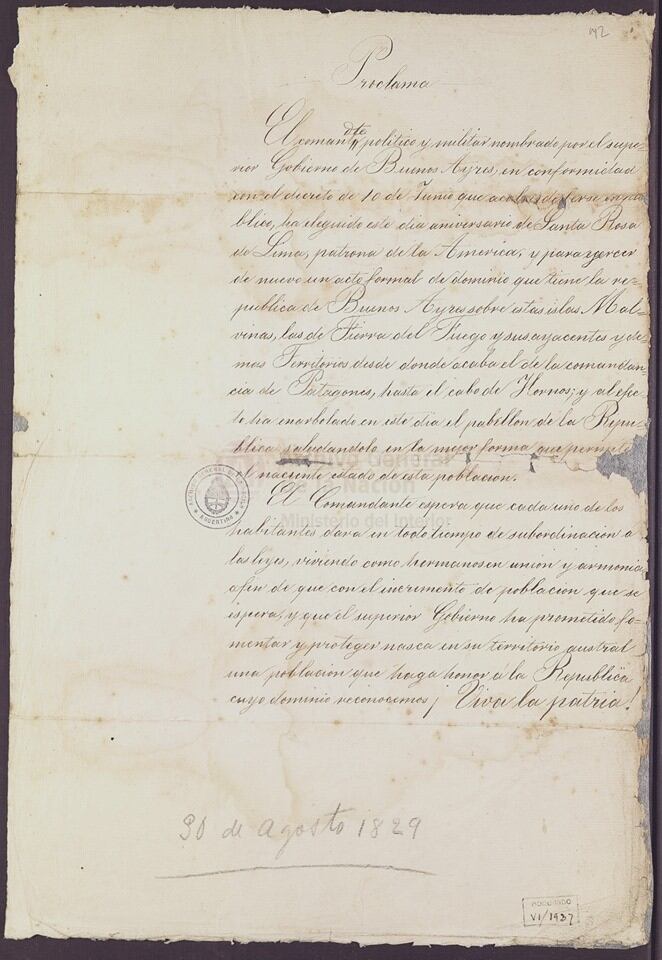 192
Proclama
El comandte político y militar nombrado por el supe-
rior Gobierno de Buenos Ayres, en conformidad
con el decreto de 10 de Junio que acaba de leerse en pú-
blico, ha elegido este dia aniversario de Santa Rosa
de Lima, patrona de la America, y para egercer
de nuevo un acto formal de dominio que tiene la re-
publica de Buenos Ayres sobre estas islas Mal-
vinas, las de Tierra del Fuego y sus ayacentes y de-
mas Territorios desde donde acaba el de la comandan-
cia de Patagones, hasta el cabo de Hornos; y al efec-
to ha enarbolado en este dia el pabellon de la Repu-
blica saludandolo en la mejor forma que permite
el naciente estado de esta poblacion.
El Comandante espera que cada uno de los
habitantes dara en todo tiempo de subordinacion a
las leyes, viviendo como hermanos en union y armonia,
afin de que con el incremento de poblacion que se
espera, y que el superior Gobierno ha prometido fo-
mentar y proteger nasca en su territorio austral
una poblacion que haga honor á la Republica
cuyo dominio reconocemos ¡Viva la patria!
Archivo General
de la Nación
Ministerio del Interior
ARCHIVO GENERAL DE LA NACION
ARGENTINA
30 de Agosto 1829
VI/1937